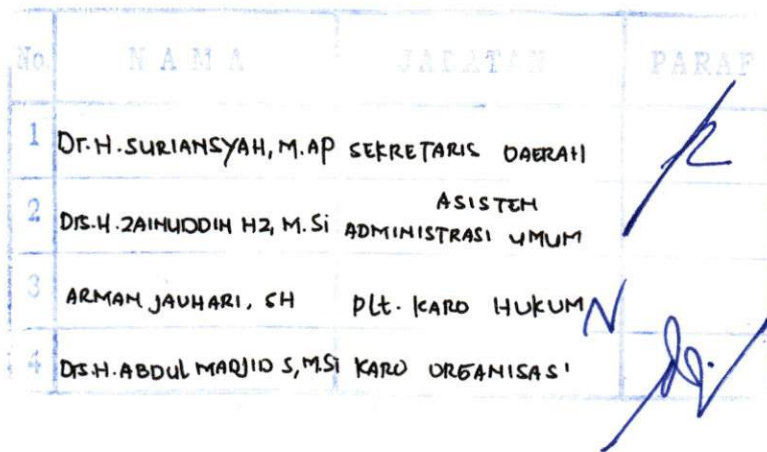 No NAMA JABATAN PARAF
1 Dr. H. SURIANSYAH, M.AP SEKRETARIS DAERAH
2 Drs. H. ZAINUDDIN HZ, M.Si ASISTEN
ADMINISTRASI UMUM
3 ARMAN JAUHARI, SH Plt. KARO HUKUM
4 Drs. H. ABDUL MADJID S, M.Si KARO ORGANISASI